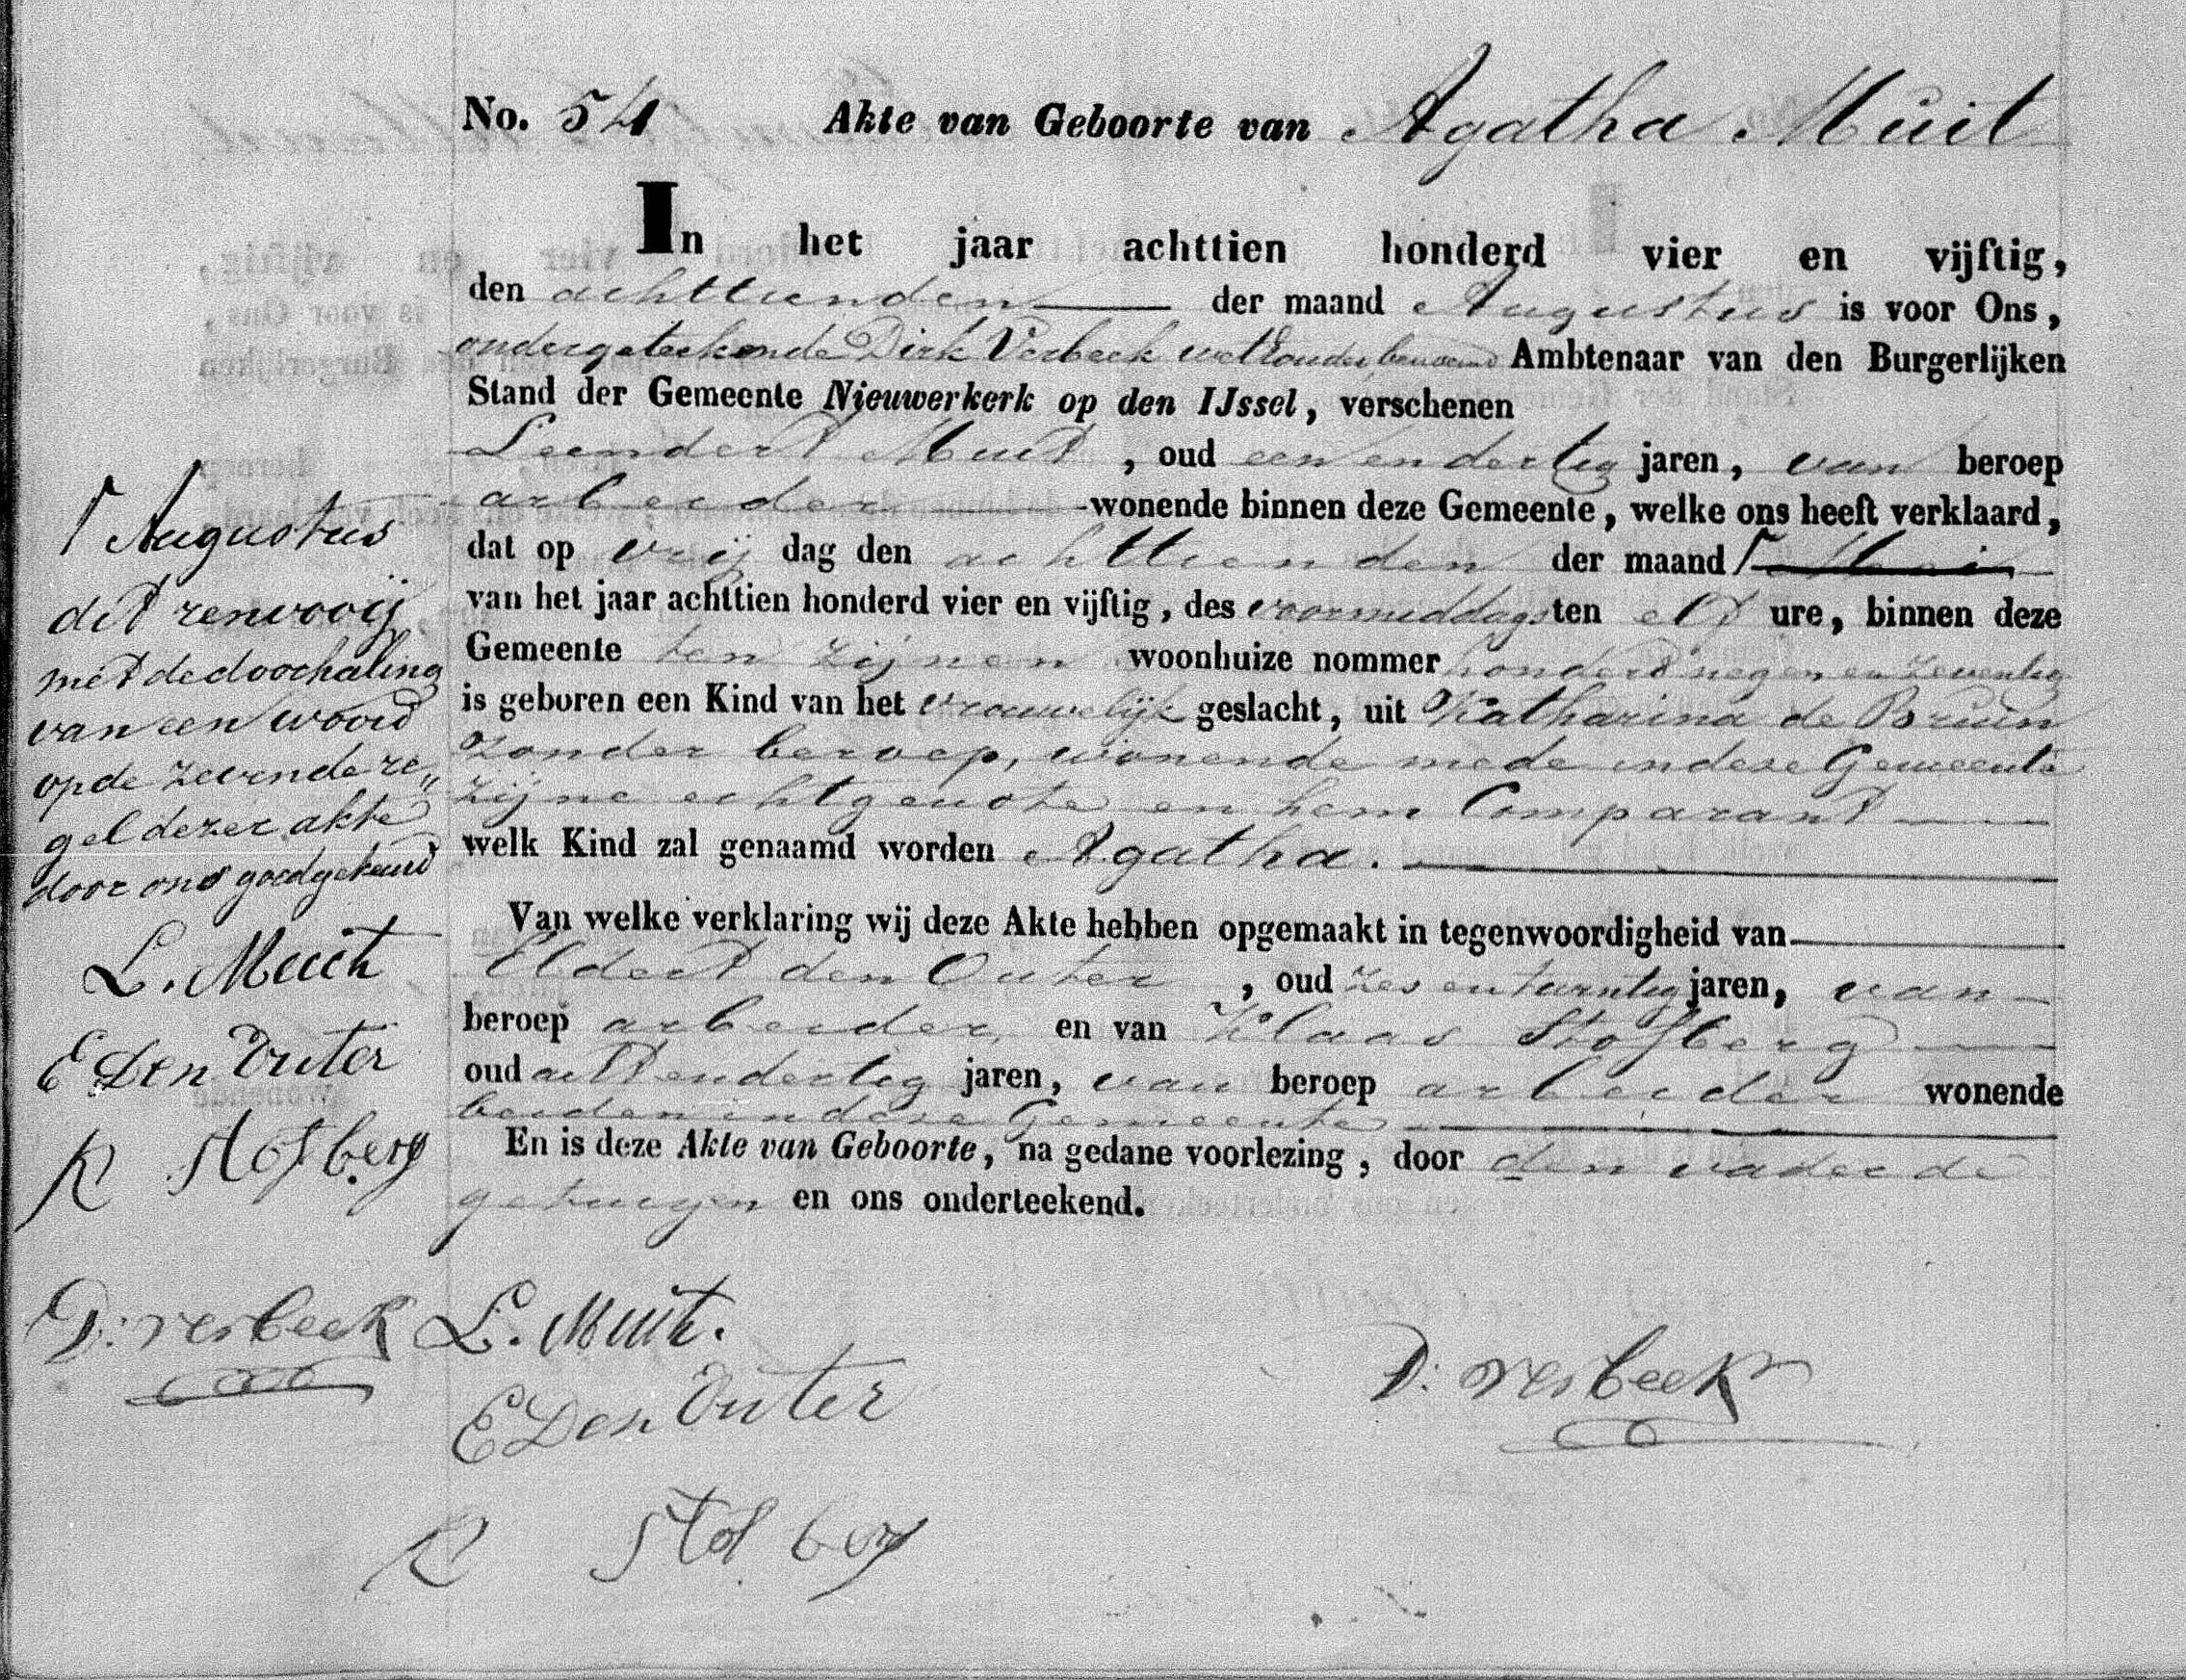 No. 54 Akte van Geboorte van Agatha Muit
In het jaar achttien honderd vier en vijftig,
den achttienden der maand Augustus is voor Ons,
ondergeteekende Dirk Verbeek wethouder benoemd Ambtenaar van den Burgerlijken
Stand der Gemeente Nieuwerkerk op den IJssel, verschenen
Leendert Muit, oud een en dertig jaren, van beroep
arbeider wonende binnen deze Gemeente, welke ons heeft verklaard,
dat op vrij dag den achttienden der maand
van het jaar achttien honderd vier en vijftig, des voormiddags ten elf ure, binnen deze
Gemeente ten zijnen woonhuize nommer honderd negen en zeventig
is geboren een Kind van het vrouwelijk geslacht, uit Katharina de Bruin
zonder beroep, wonende mede in deze Gemeente
zijne echtgenote en hem Comparant
welk Kind zal genaamd worden Agatha.
Van welke verklaring wij deze Akte hebben opgemaakt in tegenwoordigheid van
Eldert den Outer, oud zes en twintig jaren, van
beroep arbeider, en van Klaas Stofberg
oud acht en dertig jaren, van beroep arbeider wonende
beiden in deze Gemeente
En is deze Akte van Geboorte, na gedane voorlezing, door den vader de
getuigen en ons onderteekend.
Augustus
dit renvooij
met de doorhaling
van een woord
op de zevende re„
gel dezer akte
door ons goedgekeurd
L. Muit
E Den Outer
K Stofberg
D: Verbeek
L. Muit.
E Den Outer
K Stofberg
D: Verbeek